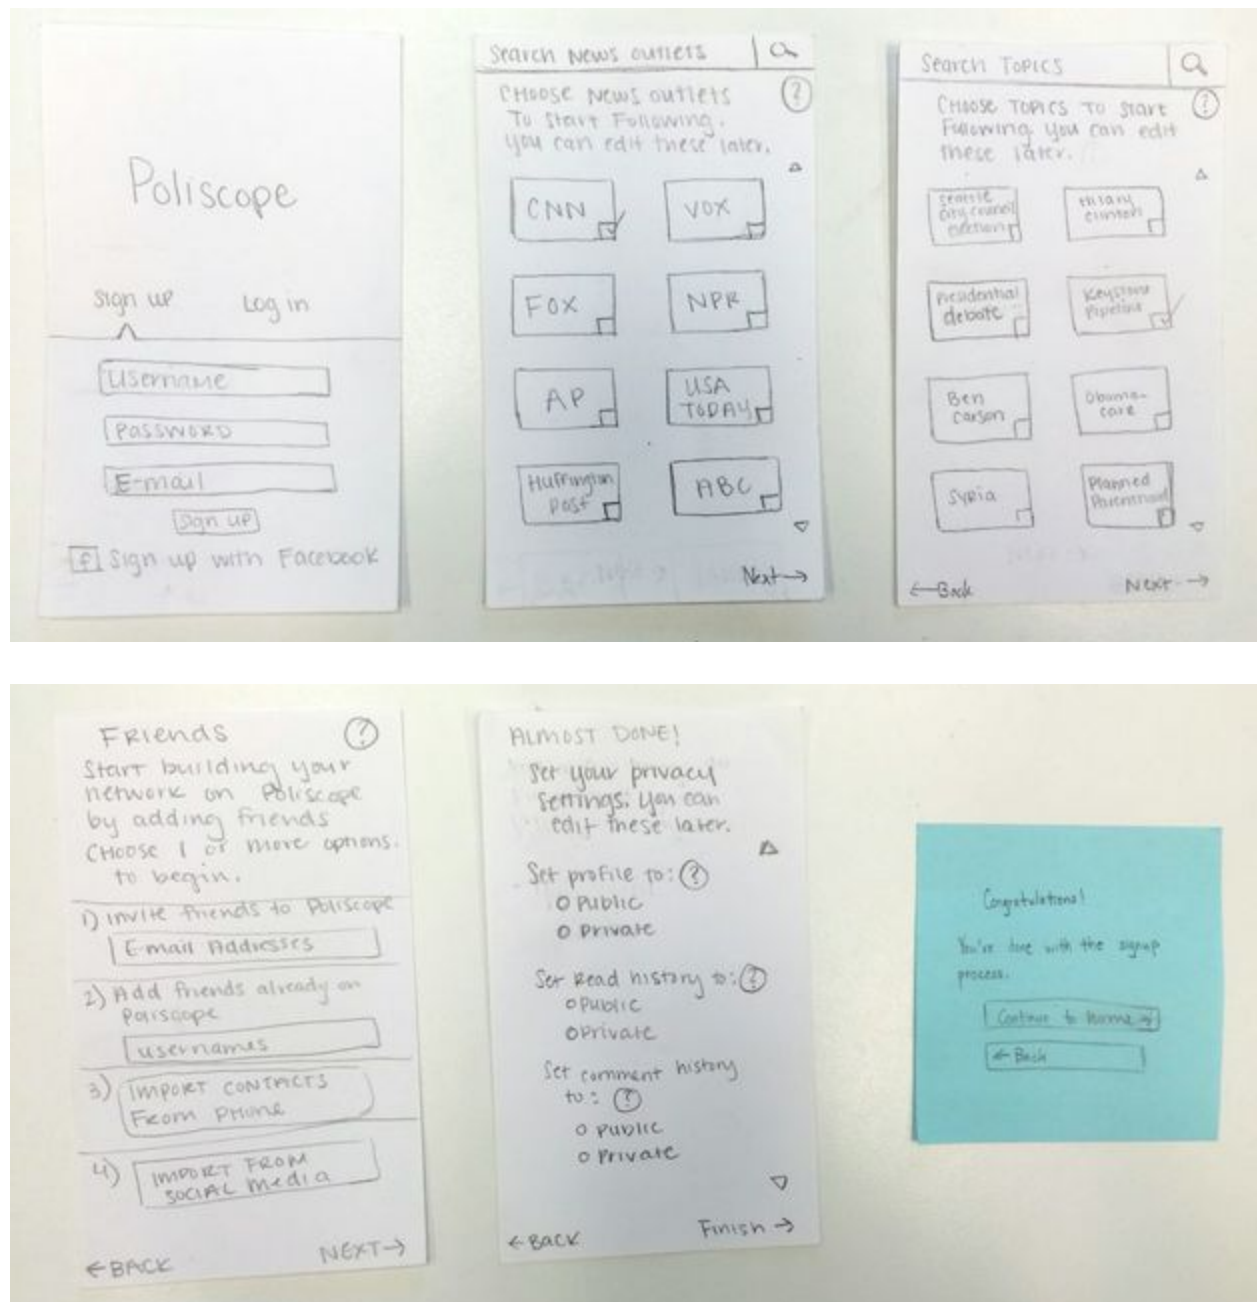 Poliscope
Sign up Log in
Username
Password
E-mail
Sign up
f Sign up with Facebook
Search News outlets
Choose News outlets ?
To Start Following.
You can edit these later.
CNN VOX
FOX NPR
AP USA
TODAY
Huffington
Post ABC
Next →
Search Topics
Choose Topics to start ?
Following. You can edit
these later.
Seattle
City Council
election
Hilary
Clinton
Presidential
debate
Keystone
Pipeline
Ben
Carson
Obama-
care
Syria
Planned
Parenthood
← Back Next →
Friends ?
Start building your
network on Poliscope
by adding friends
Choose 1 or more options.
to begin.
1) Invite friends to Poliscope
E-mail Addresses
2) Add friends already on
Poliscope
usernames
3) Import contacts
From Phone
4) Import From
Social Media
← Back Next →
Almost Done!
Set your privacy
settings. You can
edit these later.
Set profile to: ?
o Public
o Private
Set Read history to: ?
o Public
o Private
Set comment history
to: ?
o Public
o Private
← Back Finish →
Congratulations!
You're done with the signup
process.
Continue to home →
← Back